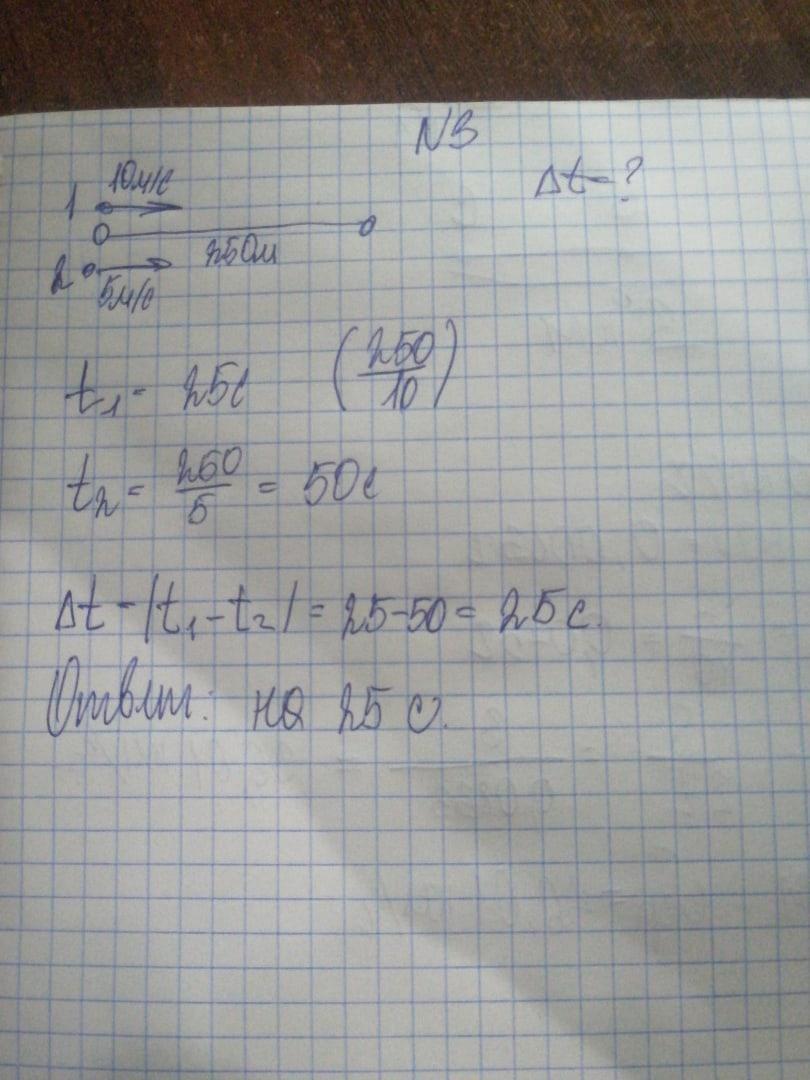 N3
10м/с
Δt-?
1
250м
2
5м/с
t₁ = 25с (250/10)
t₂ = 250/5 = 50с
Δt = |t₁ - t₂| = 25-50 = 25 с.
Ответ: на 25 с.